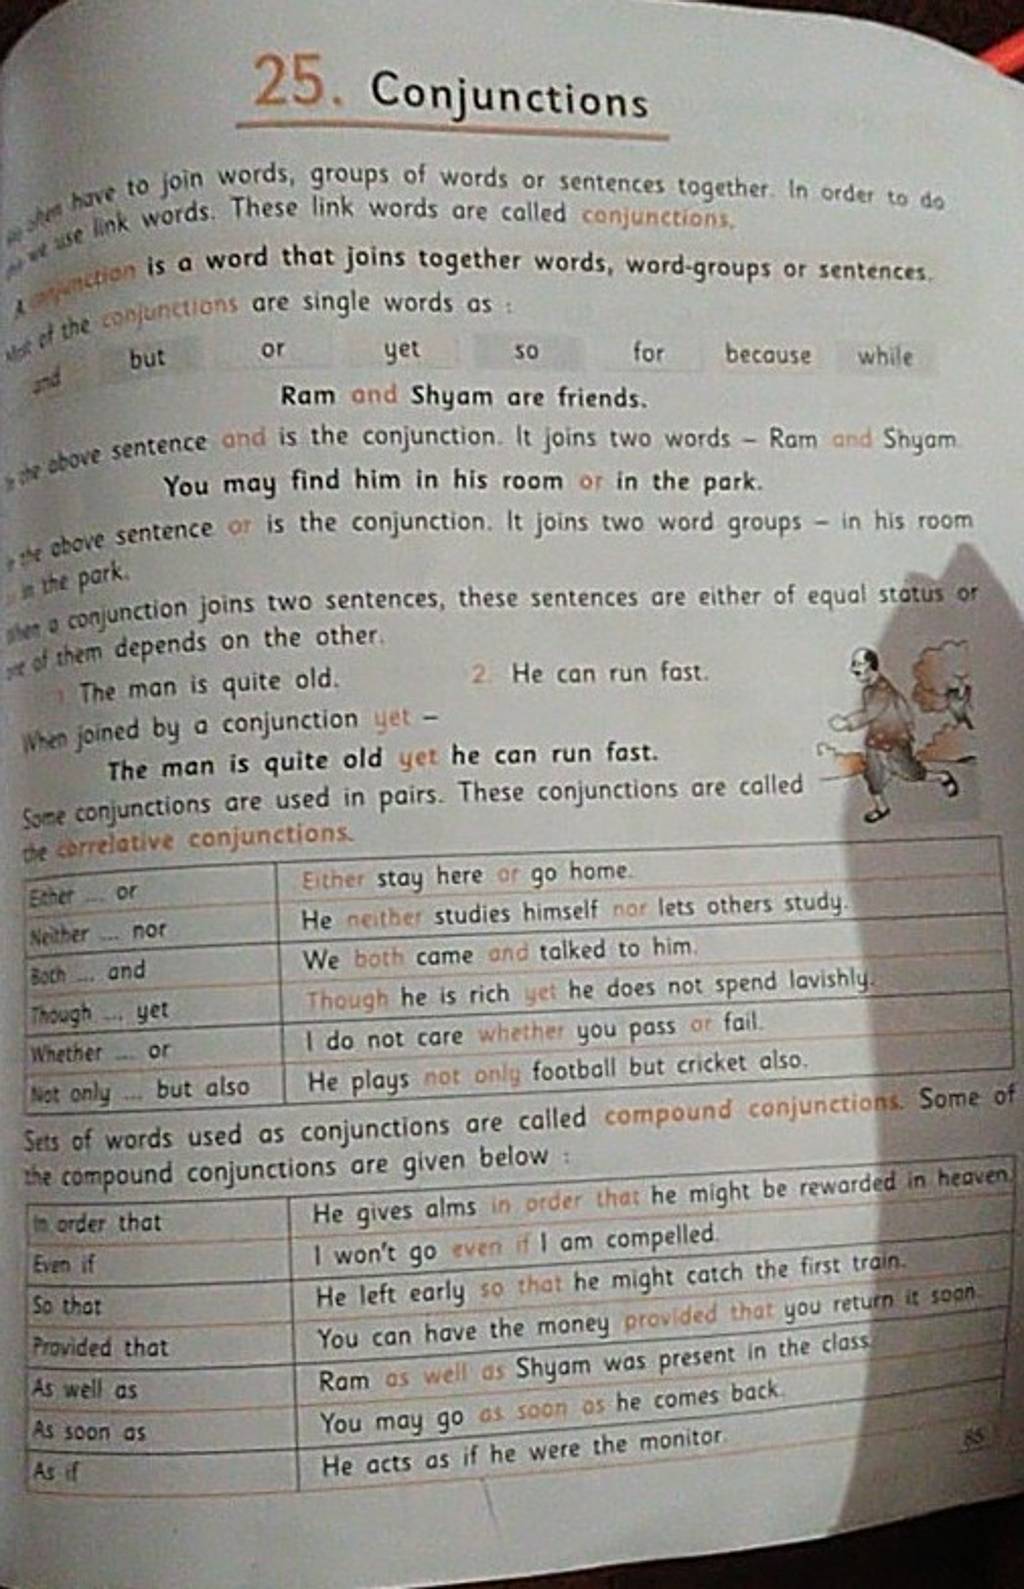 25. Conjunctions
We often have to join words, groups of words or sentences together. In order to do
we use link words. These link words are called conjunctions.
A conjunction is a word that joins together words, word-groups or sentences.
Most of the conjunctions are single words as :
and but or yet so for because while
Ram and Shyam are friends.
In the above sentence and is the conjunction. It joins two words – Ram and Shyam.
You may find him in his room or in the park.
In the above sentence or is the conjunction. It joins two word groups – in his room
in the park.
When a conjunction joins two sentences, these sentences are either of equal status or
one of them depends on the other.
1. The man is quite old. 2. He can run fast.
When joined by a conjunction yet –
The man is quite old yet he can run fast.
Some conjunctions are used in pairs. These conjunctions are called
the correlative conjunctions.
Either ... or Either stay here or go home.
Neither ... nor He neither studies himself nor lets others study.
Both ... and We both came and talked to him.
Though ... yet Though he is rich yet he does not spend lavishly.
Whether ... or I do not care whether you pass or fail.
Not only ... but also He plays not only football but cricket also.
Sets of words used as conjunctions are called compound conjunctions. Some of
the compound conjunctions are given below :
In order that He gives alms in order that he might be rewarded in heaven.
Even if I won't go even if I am compelled.
So that He left early so that he might catch the first train.
Provided that You can have the money provided that you return it soon.
As well as Ram as well as Shyam was present in the class.
As soon as You may go as soon as he comes back.
As if He acts as if he were the monitor.